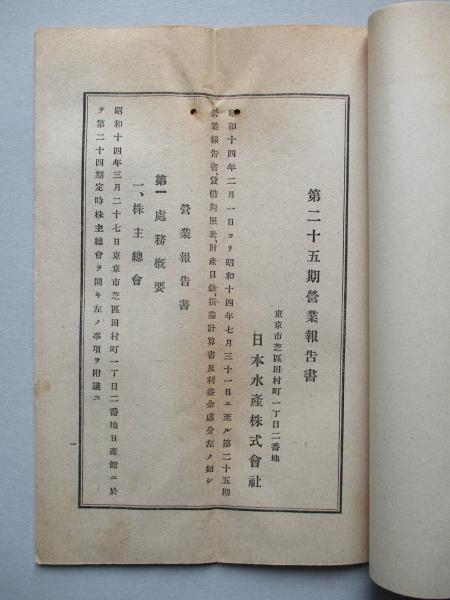 第二十五期營業報告書
東京市芝區田村町一丁目二番地
日本水產株式會社
昭和十四年二月一日ヨリ昭和十四年七月三十一日ニ至ル第二十五期
營業報告書、貸借對照表、財產目錄、損益計算書及利益金處分左ノ如シ
營業報告書
第一 處務概要
一、株主總會
昭和十四年三月二十七日東京市芝區田村町一丁目二番地日產館ニ於
テ第二十四期定時株主總會ヲ開キ左ノ事項ヲ附議ス
一